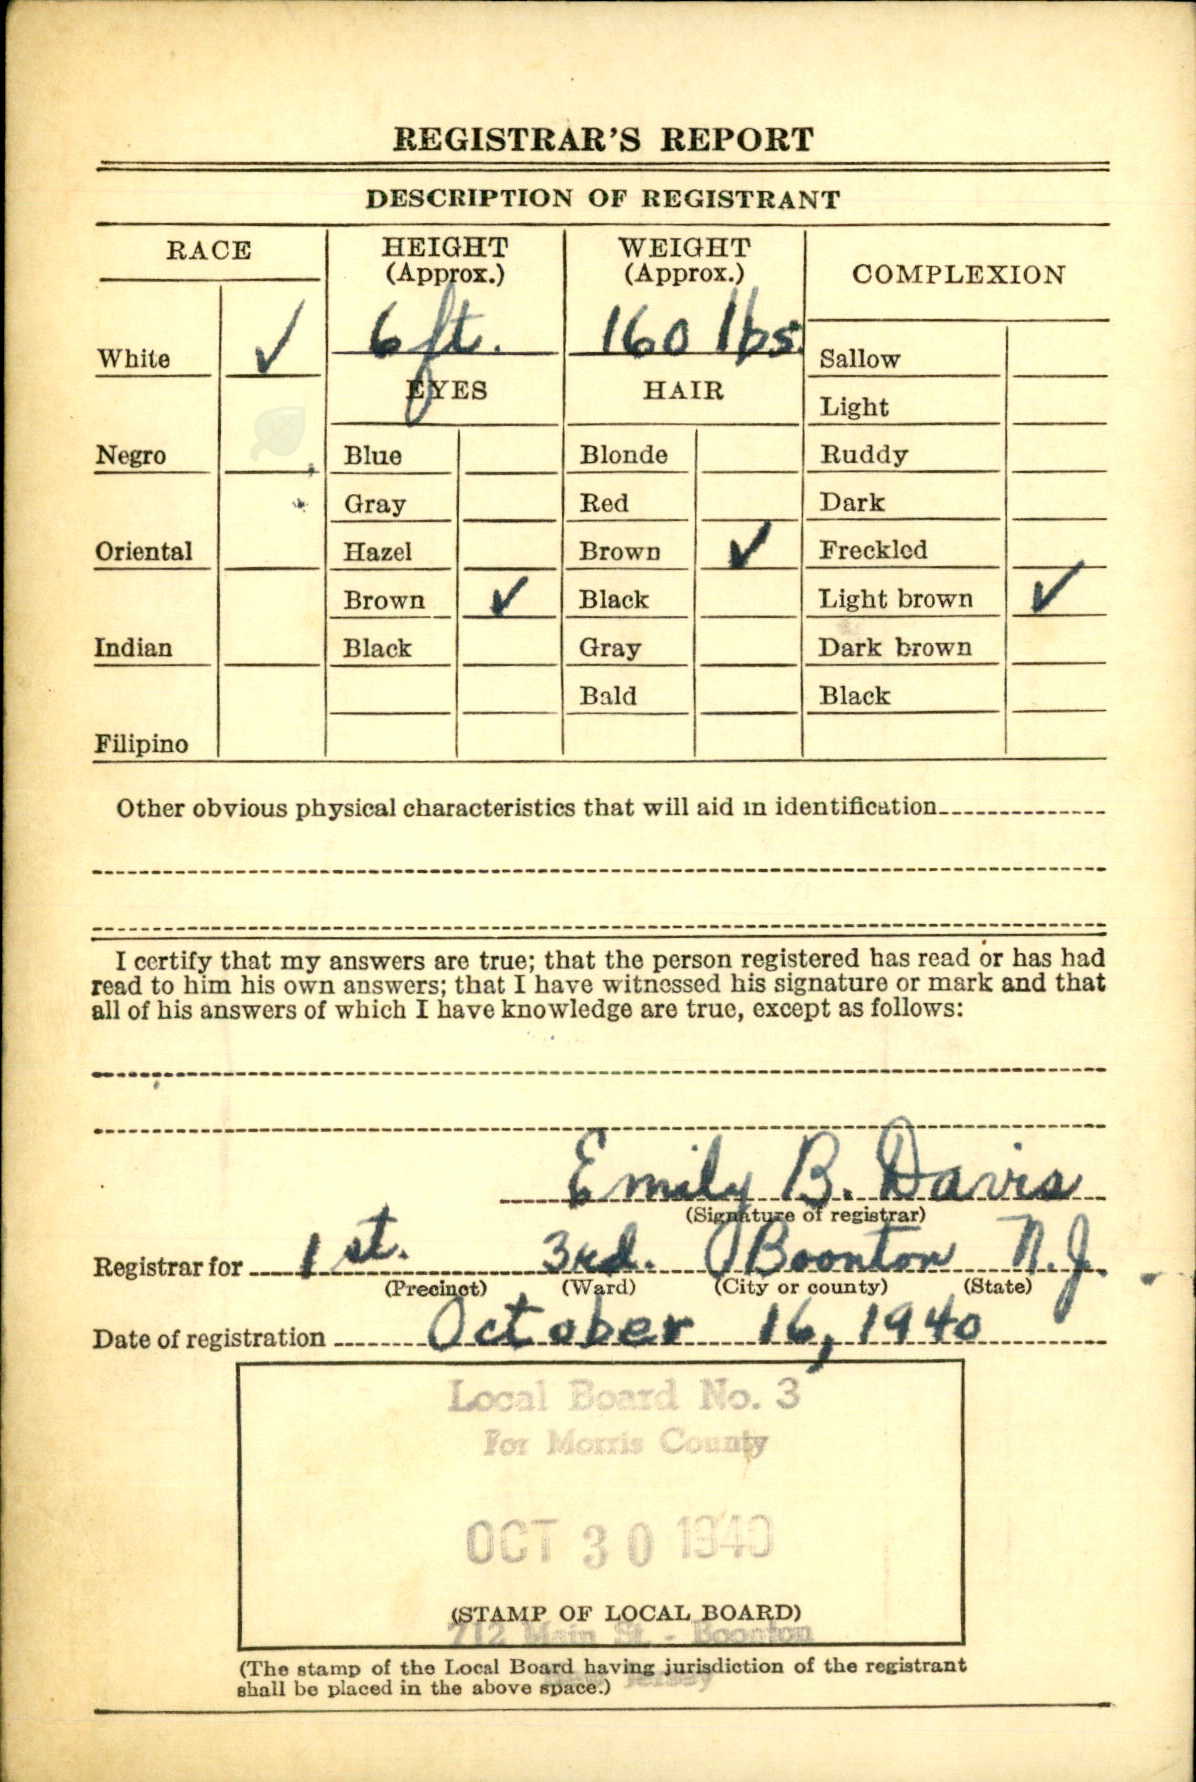 REGISTRAR'S REPORT
DESCRIPTION OF REGISTRANT
RACE
White ✓
Negro
Oriental
Indian
Filipino
HEIGHT
(Approx.)
6 ft.
WEIGHT
(Approx.)
160 lbs.
EYES
Blue
Gray
Hazel
Brown ✓
Black
HAIR
Blonde
Red
Brown ✓
Black
Gray
Bald
COMPLEXION
Sallow
Light
Ruddy
Dark
Freckled
Light brown ✓
Dark brown
Black
Other obvious physical characteristics that will aid in identification
I certify that my answers are true; that the person registered has read or has had
read to him his own answers; that I have witnessed his signature or mark and that
all of his answers of which I have knowledge are true, except as follows:
Emily B. Davis
(Signature of registrar)
Registrar for 1st. 3rd. Boonton N.J.
(Precinct) (Ward) (City or county) (State)
Date of registration October 16, 1940
Local Board No. 3
For Morris County
OCT 30 1940
(STAMP OF LOCAL BOARD)
712 Main St. - Boonton
(The stamp of the Local Board having jurisdiction of the registrant
shall be placed in the above space.)
New Jersey